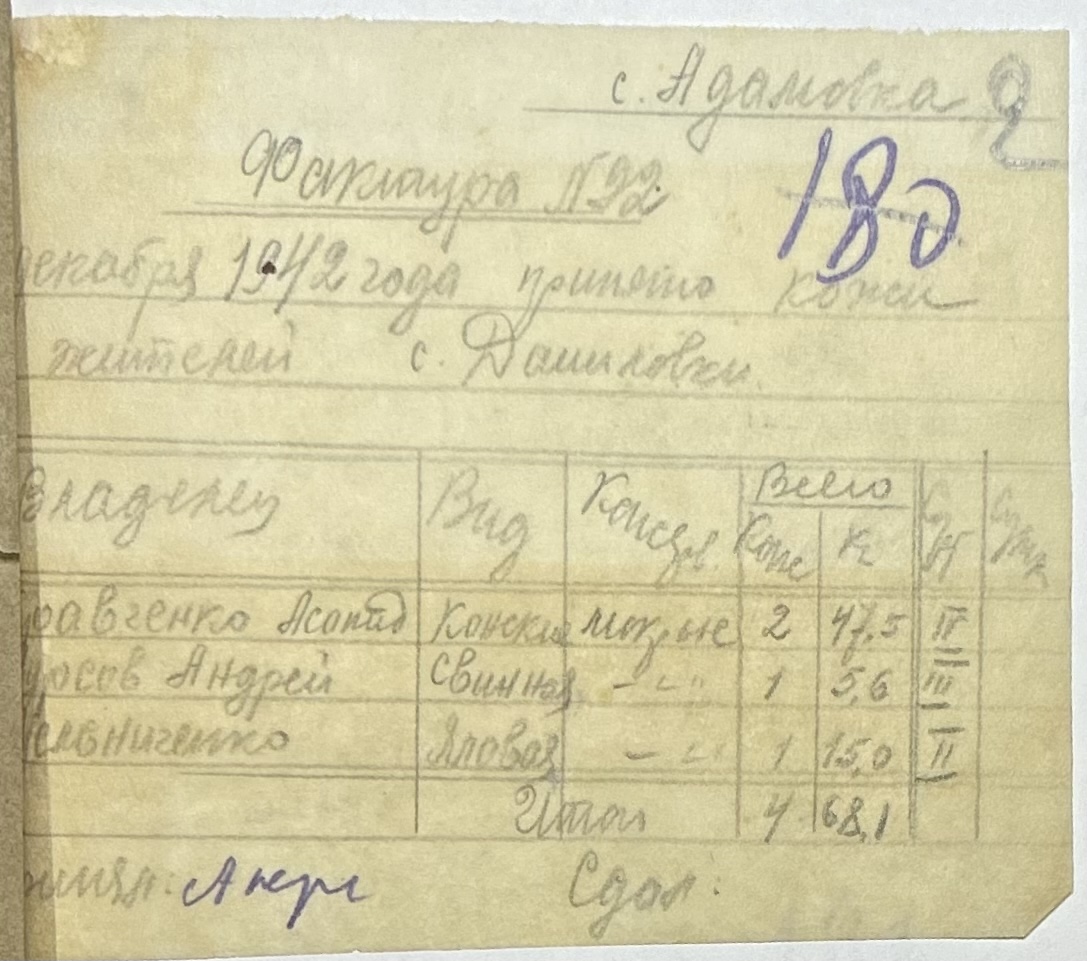 с. Адамовка 2
180
Фактура №22
декабря 1942 года принято кожи
жителей с. Даниловки
Владелец Вид Консерв. Всего
Кож кг
равченко Леонид Конские мокрые 2 47,5 II
росов Андрей Свинная -〃- 1 5,6 III
ельниченко Яловая -〃- 1 15,0 II
Итог 4 68,1
инял: Сдал: